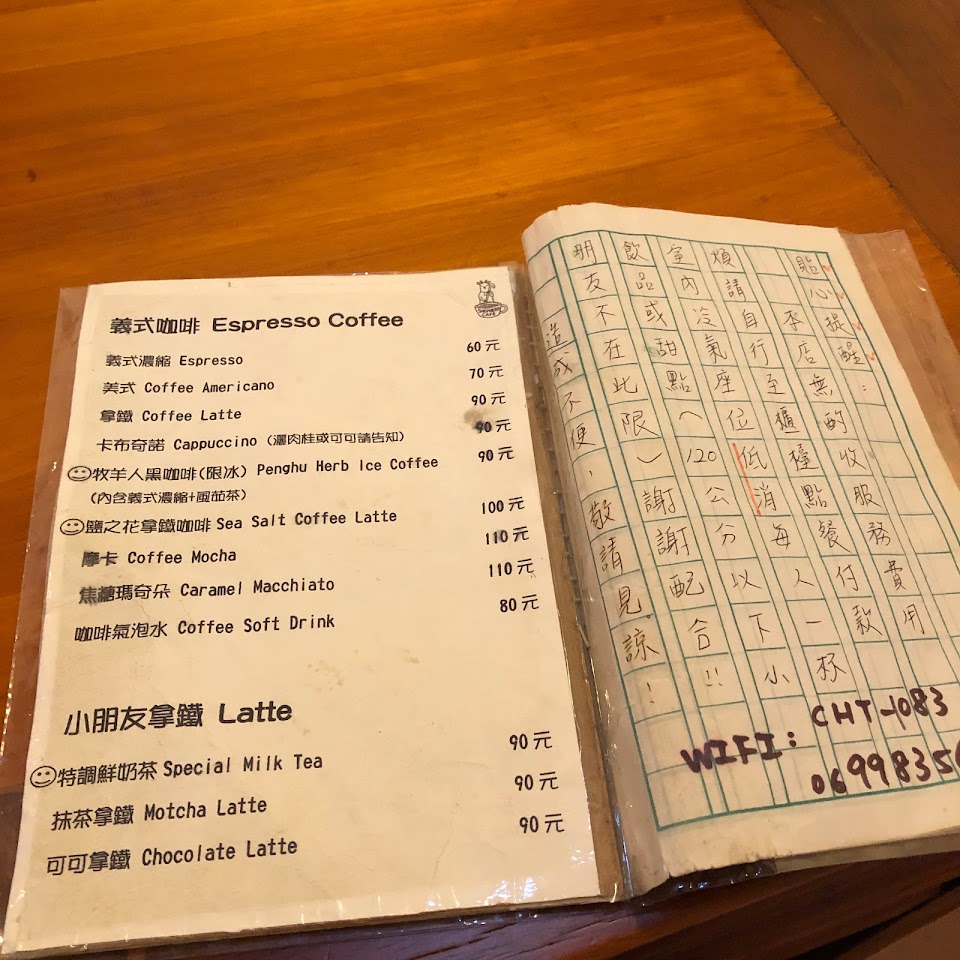 義式咖啡 Espresso Coffee
義式濃縮 Espresso 60元
美式 Coffee Americano 70元
拿鐵 Coffee Latte 90元
卡布奇諾 Cappuccino (灑肉桂或可可請告知) 90元
牧羊人黑咖啡(限冰) Penghu Herb Ice Coffee 90元
(內含義式濃縮+風茄茶)
鹽之花拿鐵咖啡 Sea Salt Coffee Latte 100元
摩卡 Coffee Mocha 110元
焦糖瑪奇朵 Caramel Macchiato 110元
咖啡氣泡水 Coffee Soft Drink 80元
小朋友拿鐵 Latte
特調鮮奶茶 Special Milk Tea 90元
抹茶拿鐵 Motcha Latte 90元
可可拿鐵 Chocolate Latte 90元
貼心提醒：
本店無酌收服務費用
煩請自行至櫃檯點餐付款
室內冷氣座位低消每人一杯
飲品或甜點(120公分以下小
朋友不在此限)謝謝配合!!
造成不便，敬請見諒！
WIFI: CHT-1083
0699835